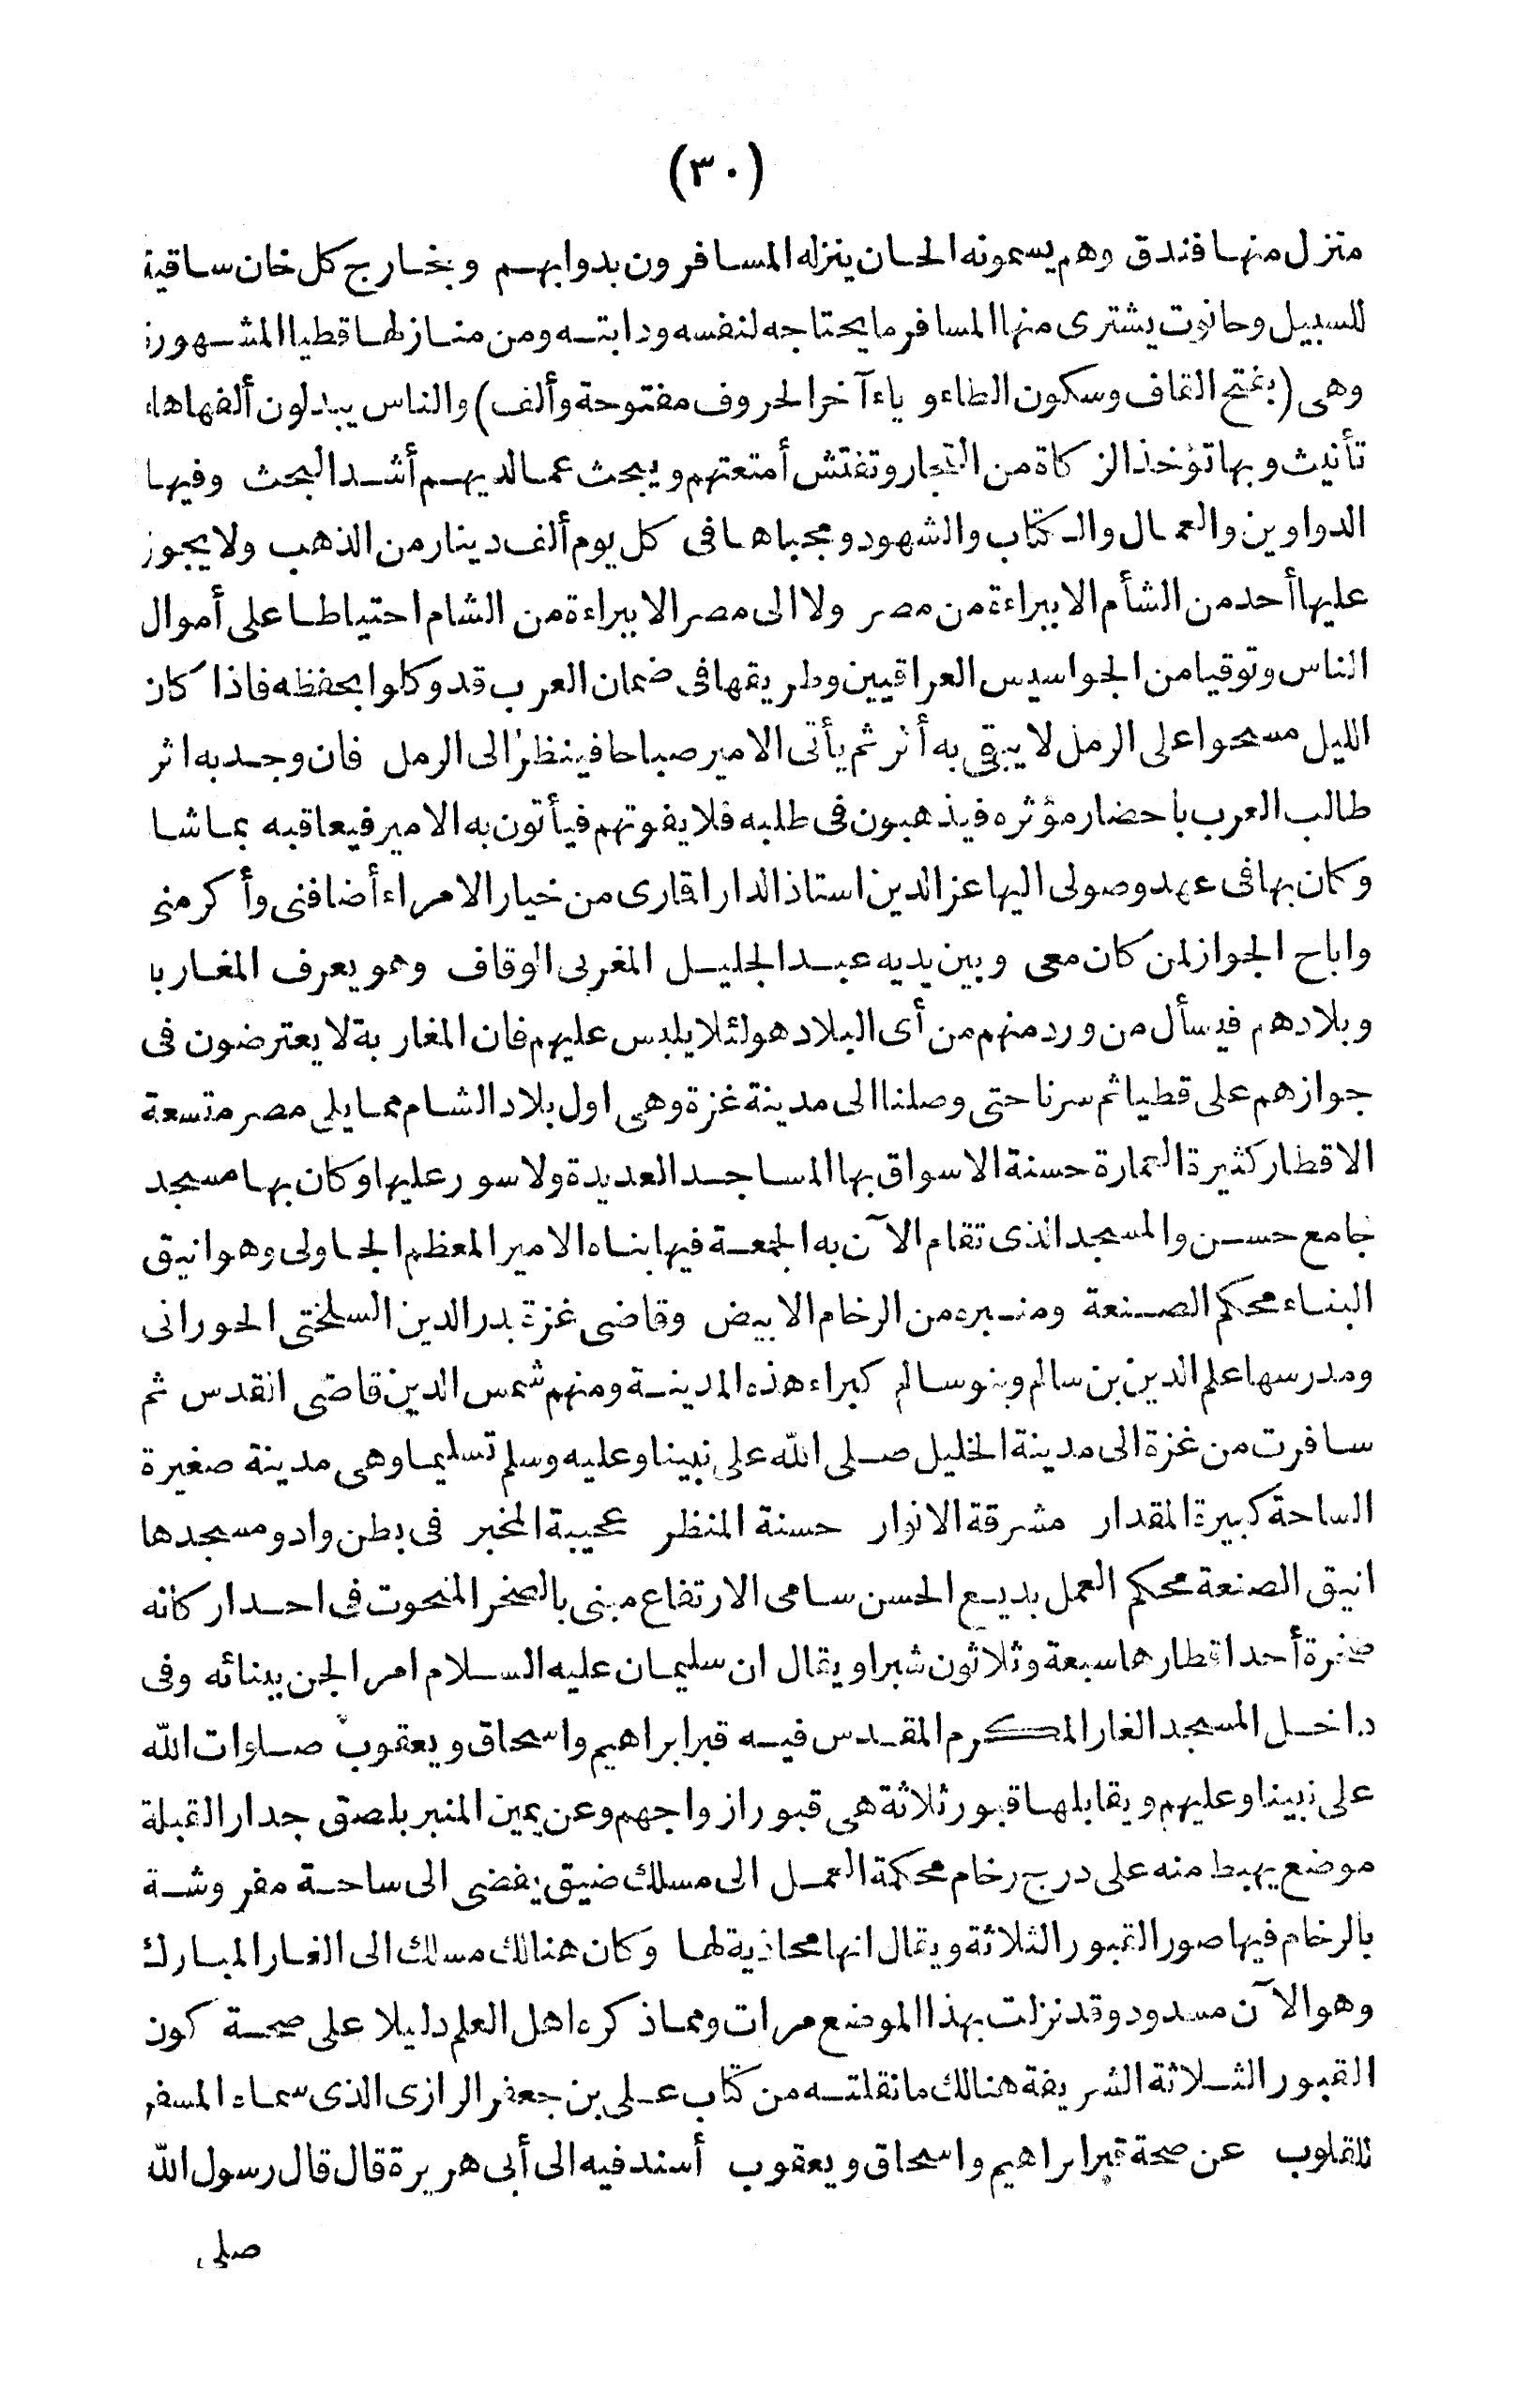 (٣٠)
منزل منها فندق وهم يسمونه الخان ينزله المسافرون بدوابهم وبخارج كل خان ساقية
للسبيل وحانوت يشترى منها المسافر ما يحتاجه لنفسه ودابته ومن منازلها قطيا المشهورة
وهى (بفتح القاف وسكون الطاء وياء آخر الحروف مفتوحة وألف) والناس يبدلون ألفها هاء
تأنيث وبها تؤخذ الزكاة من التجار وتفتش أمتعتهم ويبحث عما لديهم أشد البحث وفيها
الدواوين والعمال والكتاب والشهود ومجباها فى كل يوم ألف دينار من الذهب ولا يجوز
عليها أحد من الشأم الا ببراءة من مصر ولا الى مصر الا ببراءة من الشام احتياطا على أموال
الناس وتوقيا من الجواسيس العراقيين وطريقها فى ضمان العرب قد وكلوا بحفظه فاذا كان
الليل مسحوا على الرمل لا يبقى به أثر ثم يأتى الامير صباحا فينظر الى الرمل فان وجد به اثر
طالب العرب باحضار مؤثره فيذهبون فى طلبه فلا يفوتهم فيأتون به الامير فيعاقبه بما شا
وكان بها فى عهد وصولى اليها عز الدين استاذ الدار اقارى من خيار الامراء أضافنى وأكرمنى
واباح الجواز لمن كان معى وبين يديه عبد الجليل المغربى الوقاف وهو يعرف المغاربة
وبلادهم فيسأل من ورد منهم من أى البلاد هو لئلا يلبس عليهم فان المغاربة لا يعترضون فى
جوازهم على قطيا ثم سرنا حتى وصلنا الى مدينة غزة وهى اول بلاد الشام مما يلى مصر متسعة
الاقطار كثيرة العمارة حسنة الاسواق بها المساجد العديدة ولا سور عليها وكان بها مسجد
جامع حسن والمسجد الذى تقام الآن به الجمعة فيها بناه الامير المعظم الجاولى وهو انيق
البناء محكم الصنعة ومنبره من الرخام الابيض وقاضى غزة بدر الدين السلختى الحورانى
ومدرسها علم الدين بن سالم وبنو سالم كبراء هذه المدينة ومنهم شمس الدين قاضى القدس ثم
سافرت من غزة الى مدينة الخليل صلى الله على نبينا وعليه وسلم تسليما وهى مدينة صغيرة
الساحة كبيرة المقدار مشرقة الانوار حسنة المنظر عجيبة المخبر فى بطن واد ومسجدها
انيق الصنعة محكم العمل بديع الحسن سامى الارتفاع مبنى بالصخر المنحوت فى احد اركانه
صخرة أحد اقطارها سبعة وثلاثون شبرا ويقال ان سليمان عليه السلام امر الجن ببنائه وفى
داخل المسجد الغار المكرم المقدس فيه قبر ابراهيم واسحاق ويعقوب صلوات الله
على نبينا وعليهم ويقابلها قبور ثلاثة هى قبور ازواجهم وعن يمين المنبر بلصق جدار القبلة
موضع يهبط منه على درج رخام محكمة العمل الى مسلك ضيق يفضى الى ساحة مفروشة
بالرخام فيها صور القبور الثلاثة ويقال انها محاذية لها وكان هنالك مسلك الى الغار المبارك
وهو الآن مسدود وقد نزلت بهذا الموضع مرات ومما ذكره اهل العلم دليلا على صحة كون
القبور الثلاثة الشريفة هنالك ما نقلته من كتاب على بن جعفر الرازى الذى سماه المسفر
للقلوب عن صحة قبر ابراهيم واسحاق ويعقوب أسند فيه الى أبى هريرة قال قال رسول الله
صلى